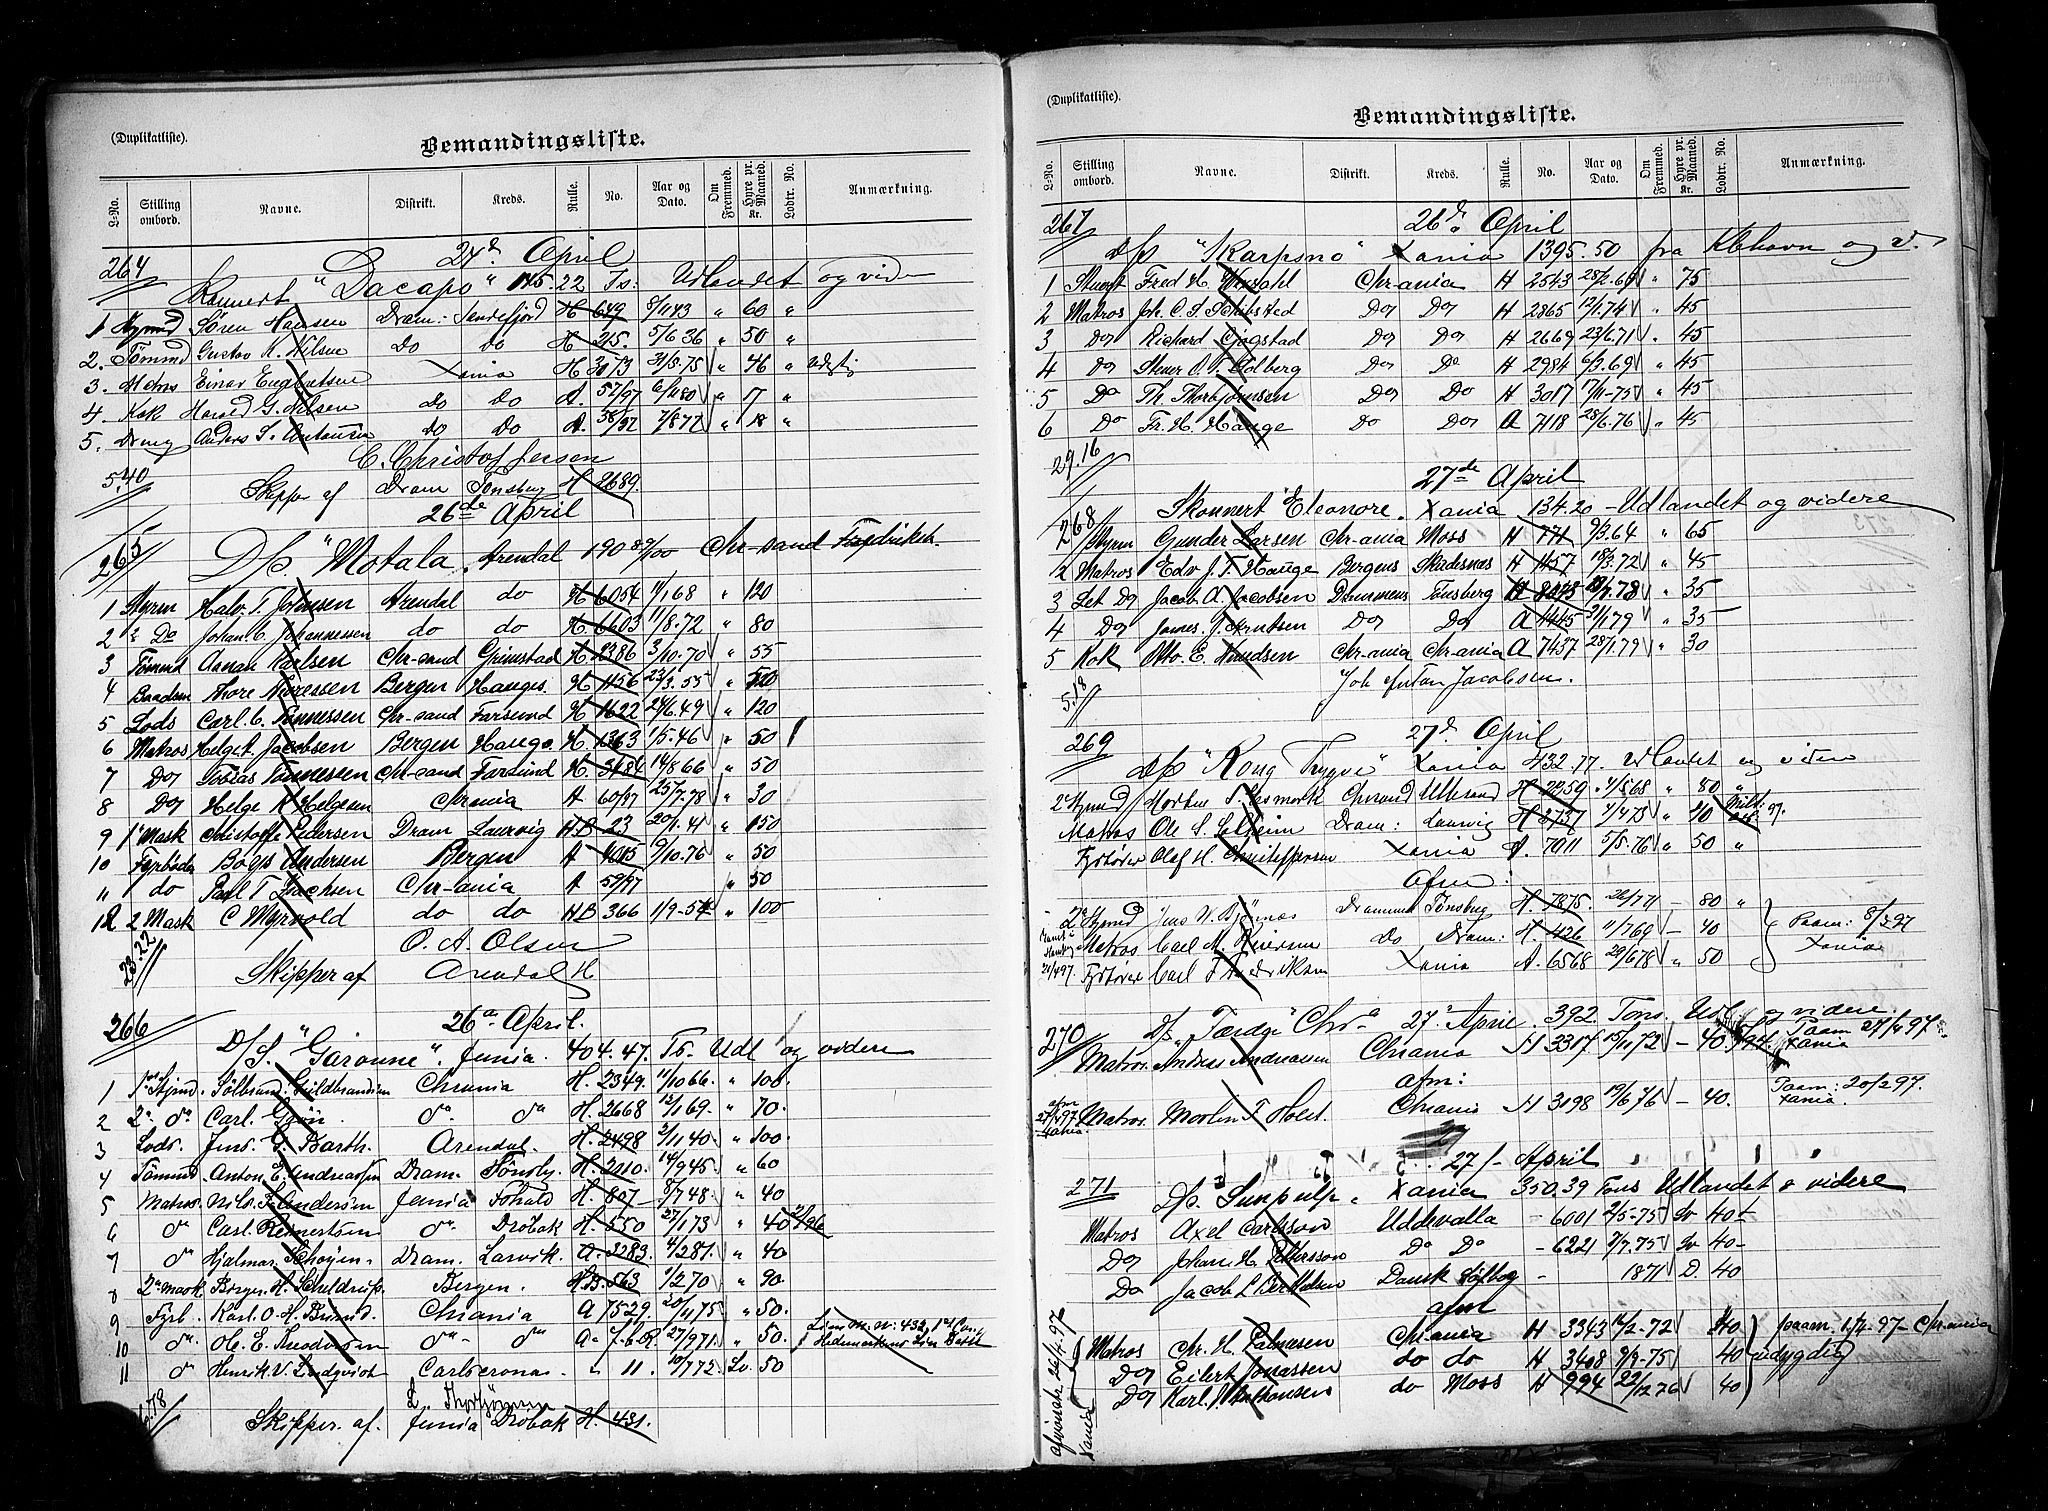 (Duplikatliste).
Bemandingsliste.
L-No. Stilling ombord. Navne. Distrikt. Kreds. Rulle. No. Aar og Dato. Om Fremmed. Hyre pr. Maaned. Kr. Lodtr. No. Anmærkning.
24d April
264 Skonnert "Dacapo" 145.22 Ts: Udlandet og videre
1 Styrmd Søren Hansen Dram: Sandefjord H 649 8/11 43 " 60 "
2. Tømmd Gustav K. Nilsen Do Do H 215. 5/6 36 " 50 "
3. Matros Einar Engbretsen Xania H 3073 31/8.75 " 46 "
4 Kok Harald G. Nilsen Do Do A. 52/97 6/11 80 " 17 "
5. Dreng Anders S. Antonsen Do Do A. 38/97 7/8 77 " 18 "
C. Christoffersen
5.40 Skipper af Dram Tønsberg H 2689.
26de April
265 D/s. "Motala" Arendal 190 89/00 Chr-sand Fredriksh.
1 Styrm Halv. T. Johnsen Arendal do H 6054 11/1 68 " 120
2 2 Do Johan C. Johannessen do do H. 6603 11/8.72 " 80
3 Tømmd Aanan Karlsen Chr-sand Grimstad H. 2386 3/10.70 " 55
4 Baadsm Thore Thoressen Bergen Hauges. H 1156 23/3.55 "
5 Lods Carl C. Tønnessen Chr-sand Farsund H 1622 24/6.49 " 120
6 Matros Helge T. Jacobsen Bergen Hauges. H. 1363 1/5.46 " 50
7 Do Tobias Tønnessen Chr-sand Farsund H. 3481 14/8 66 " 50
8 Do Helge K Helgesen Chrania A 60/97 25/7.78 " 30
9 1s Mask Christoffer Pedersen Dram Laurvig HB 23 20/1.41 " 150
10 Fyrbøder Børs Andersen Bergen A 4045 9/10.76 " 50
11 do Paul T. Isachsen Chr-ania A 59/97 " 50
12 2 Mask C Myrvold do do HB 366 1/9-54 " 100
O. A. Olsen
23.22 Skipper af Arendal H
26de April.
266 D/S. "Garonne". Xania. 404.47. Ts. Udl og videre
1 1ste Styrmd. Sølbrund Hildbrandsen Chrania H. 2349. 11/10 66. " 100.
2 2n do Carl. Gjøn. do do H. 2668 12/1 69. " 70.
3 Lods. Jens. G. Barth. Arendal. H. 2498 2/11 40. " 100.
4 Tømmd. Anton E. Andreassen Dram. Tønsbg. H. 2010. 14/9 45. " 60
5 Matros. Nils. F. Andersen Xania H. 807 8/7 48. " 40
6 do Carl. Reinertsen do Drøbak H. 550 27/1 73 " 40
7 do Hjalmar Schøyen. Dram. Larvik. A. 3283. 4/2 81. " 40
8 2n mask Birger. H. Scheldrup. Bergen. HB. 563 1/2 70 " 90
9 Fyrb. Karl. O. H. Brund. Chrania A 7529. 20/11 75 " 50.
10 do Ol. E. Theodorsen do do A. 27/9 71. " 50.
11 do Henrik V. Lindqvist Carlscrona " 11. 10/7 72. Sv. 50
L Thorbjørnsen
Skipper. af. Xania Drøbak H. 431.
(Duplikatliste).
Bemandingsliste.
L-No. Stilling ombord. Navne. Distrikt. Kreds. Rulle. No. Aar og Dato. Om Fremmed. Hyre pr. Maaned. Kr. Lodtr. No. Anmærkning.
267 26d April
D/s "Skarpsno" Xania 1395.50 fra Kbhavn og v.
1 Stuert Fred H. Werdahl Chr-ania H 2543 28/2.69 " 75
2 Matros Joh. C. S. Schibsted Do Do H 2865 12/1.74 " 45
3 Do Richard Gjøgstad Do Do H 2669 23/6.71 " 45
4 Do Stener O. Solberg Do Do H 2984 6/3.69 " 45
5 Do Th. Thorbjørnsen Do Do H 3017 17/11-75 " 45
6 Do Fr. H. Hauge Do Do A 7118 28/6.76 " 45
29.16
27de April
268 Skonnert Eleonore. Xania 134.20 - Udlandet og videre
1 Styrm Gunder Larsen Chr-ania Moss H 771 9/3.64 " 65
2 Matros Edv. J. T. Hauge Bergens Skudesnæs H 1157 18/3.72 " 45
3 Let Do Jacob A. Jacobsen Drammens Tønsberg H 8045 19/7.78 " 35
4 Do James J. Knutsen Do Do A 1445 31/1.79 " 35
5 Kok Otto. E. Knudsen Chr-ania Chr-ania A 7437 28/1.79 " 30
Joh Anton Jacobsen.
5.18
269 27d April
D/s "Kong Trygve" Xania 432.77. Udlandet og videre
2 Styrmd Morten S. Chrsand H 2259 4/5 68 " 80 "
Matros Ole S. Solheim Dram: Laurvig H 2737 4/4 75 " 40
Fyrbøder Olaf H. Christoffersen Xania A. 7011 5/5.76 " 50 "
Afm:
2 Styrmd Jens N. Bjønnæs Drammen Tønsbg H. 7875. 26/7 71 - 80 "
Matros Carl M. Iversen Do Dram: H. 426 11/7 69 - 40 Paam: 8/3 97
21/4 97. Fyrbøder Carl Fredriksen Xania A. 6568 29/6 78 " 50 Xania
270 D/s. "Færdge" Chra 27' April. 392 Tons. Udl og videre.
Matros. Andreas Andreassen Chrania H 3317 15/11 72 - 40 Paam 27/4 97. Xania
afm:
afm 27/4 97 Xania. Matros. Morten F Holst. Chrania H 3198 19/6 76 - 40. Paam: 20/2 97. Xania.
27/- April
271 D/s. "Sunpulp" Xania 350.39 Tons Udlandet & videre
Matros Axel Carlsson Uddevalla - 6001 2/5-75 Sv 40-
Do Johan H. Pettersson Do Do - 6221 7/7.75 Sv 40-
Do Jacob L Berthelsen Dansk - 1871 D. 40
afm
afmønstr 26/4 97 Xania
Matros Chr. H. Palmesen Chrania H 3343 14/2-72 40 paam. 1/4-97- Chrania
Do Eilert Jonassen do do H 3408 9/9-75 40 udygdig
Do Karl. Mathausen do Moss H 994 22/12 76 40